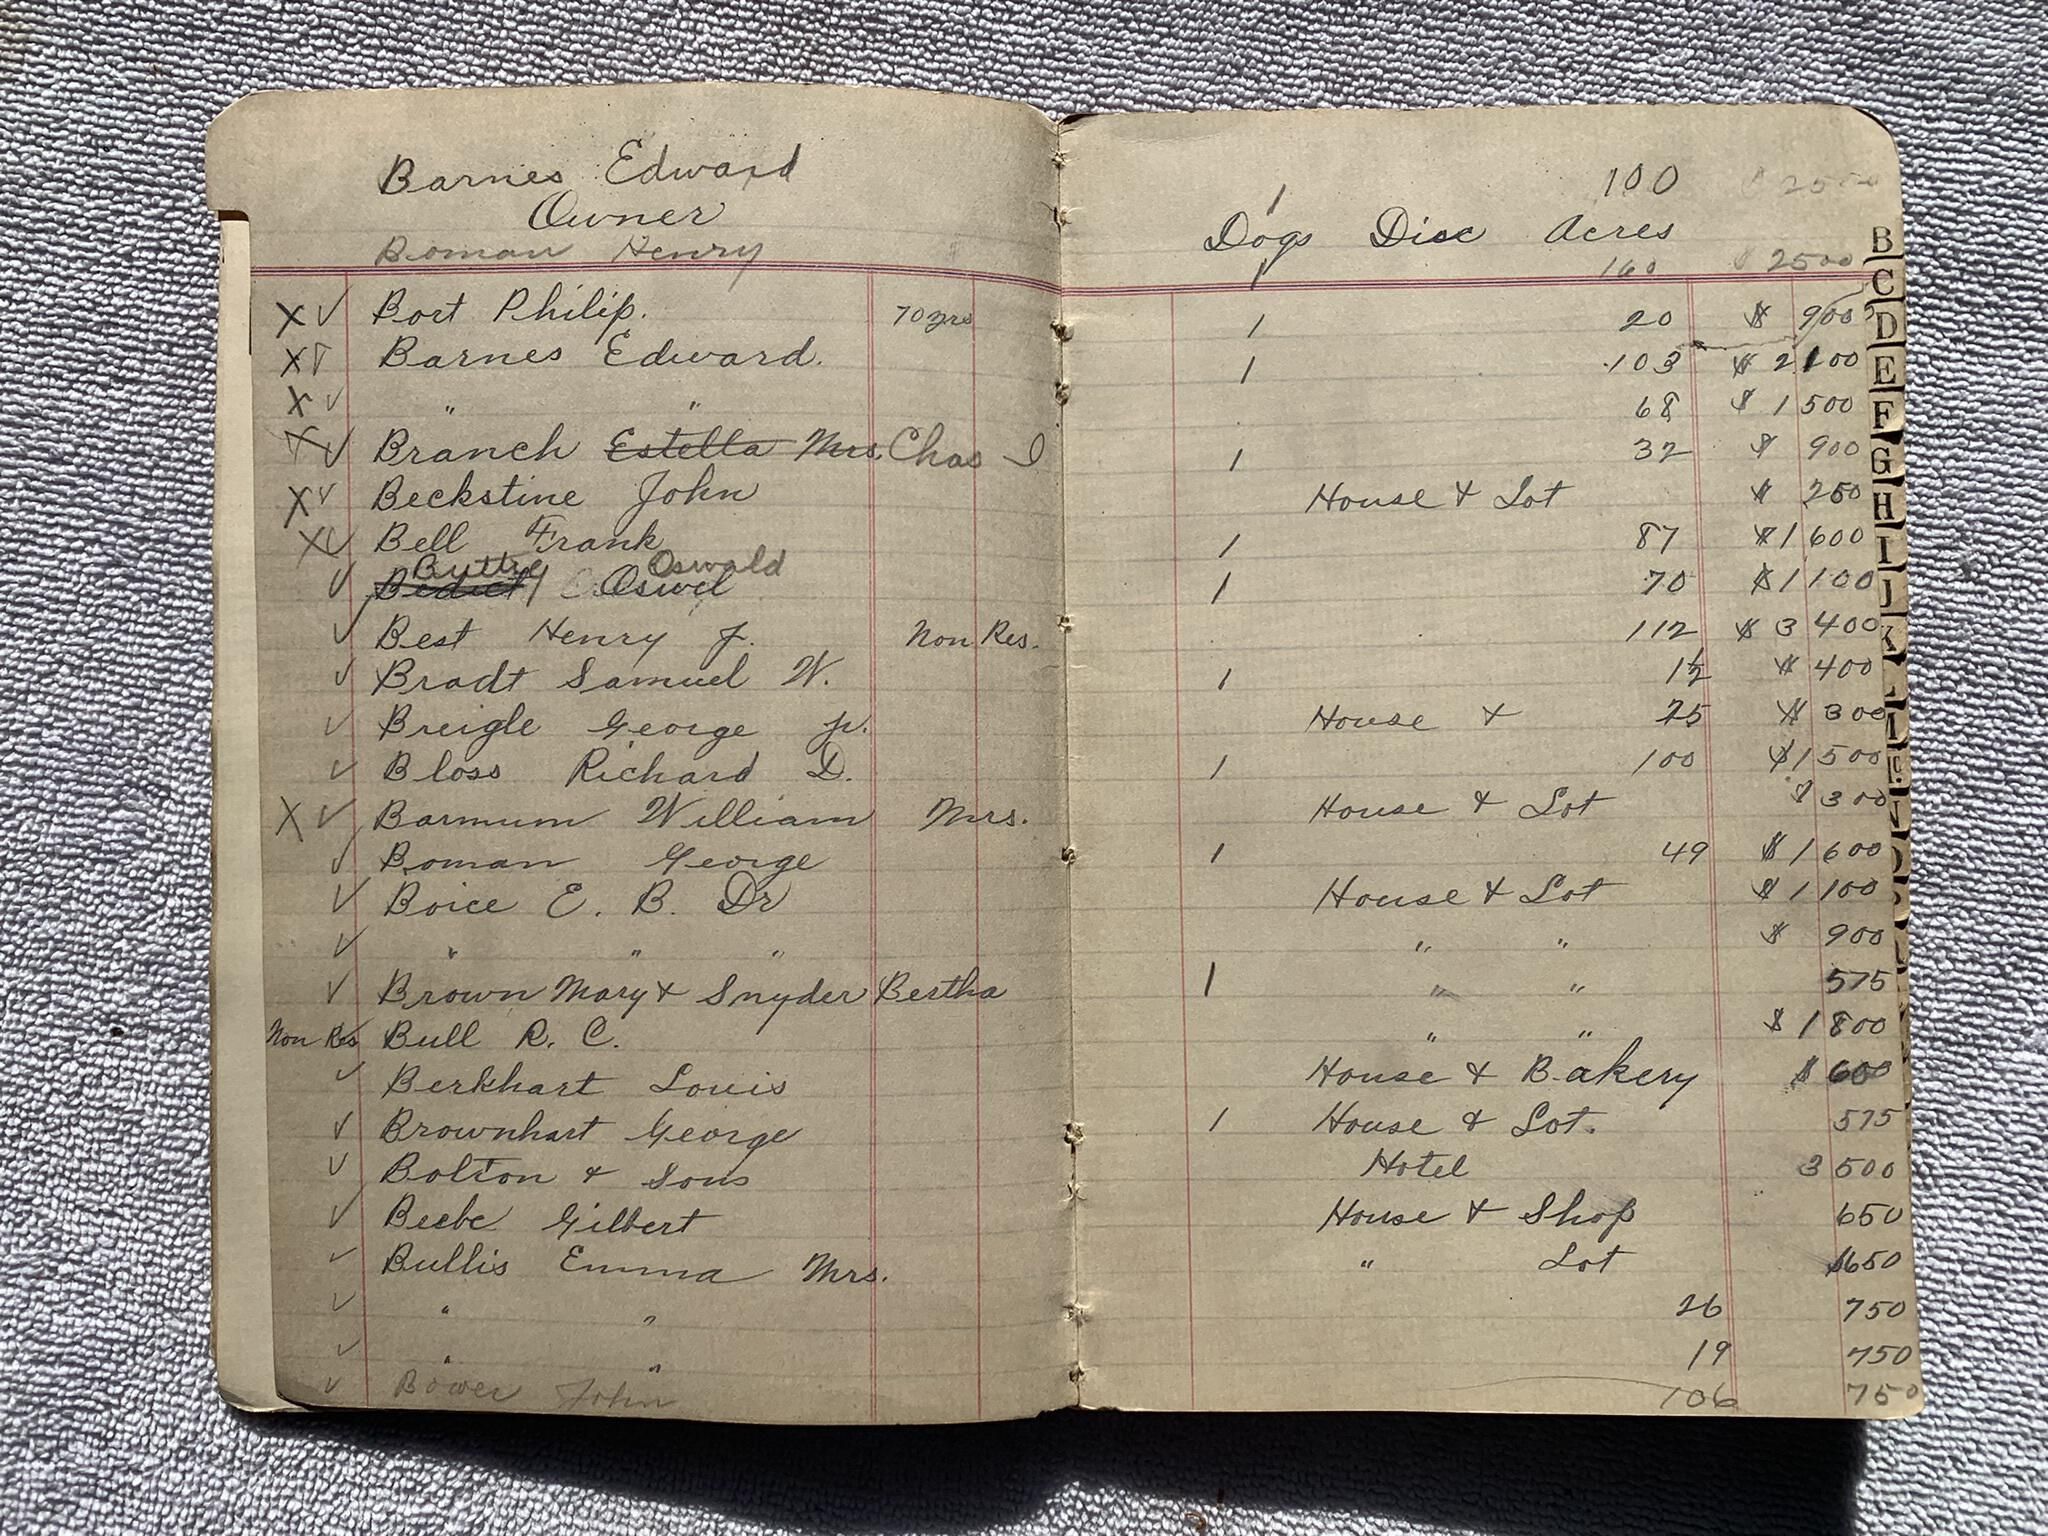 Barnes Edward 1 100 $ 2500
Owner Dogs Disc Acres
Boman Henry 1 160 $ 2500
X ✓ Bort Philip. 70 yrs 1 20 $ 900
X ✓ Barnes Edward. 1 103 $ 2100
X ✓ " " 68 $ 1500
X ✓ Branch Estella Mrs. Chas I 1 32 $ 900
X ✓ Beckstine John House & Lot $ 250
X ✓ Bell Frank 1 87 $ 1600
Buttre Oswald
✓ Bedict Oswel 1 70 $ 1100
✓ Best Henry J. Non Res. 112 $ 3400
✓ Bradt Samuel W. 1 1½ $ 400
✓ Breigle George Jr. House & 25 $ 300
✓ Bloss Richard D. 1 100 $ 1500
X ✓ Barmum William Mrs. House & Lot $ 300
✓ Boman George 1 49 $ 1600
✓ Boice E. B. Dr House & Lot $ 1100
✓ " " " " " $ 900
✓ Brown Mary & Snyder Bertha 1 " " 575
Non Res Bull R. C. " " $ 1800
✓ Berkhart Louis House & Bakery $ 600
✓ Brownhart George 1 House & Lot. 575
✓ Bolton & Sons Hotel 3500
✓ Beebe Gilbert House & Shop 650
✓ Bullis Emma Mrs. " Lot $650
✓ " " 26 750
✓ " " 19 750
✓ Bower John 106 750
B
C
D
E
F
G
H
I
J
K